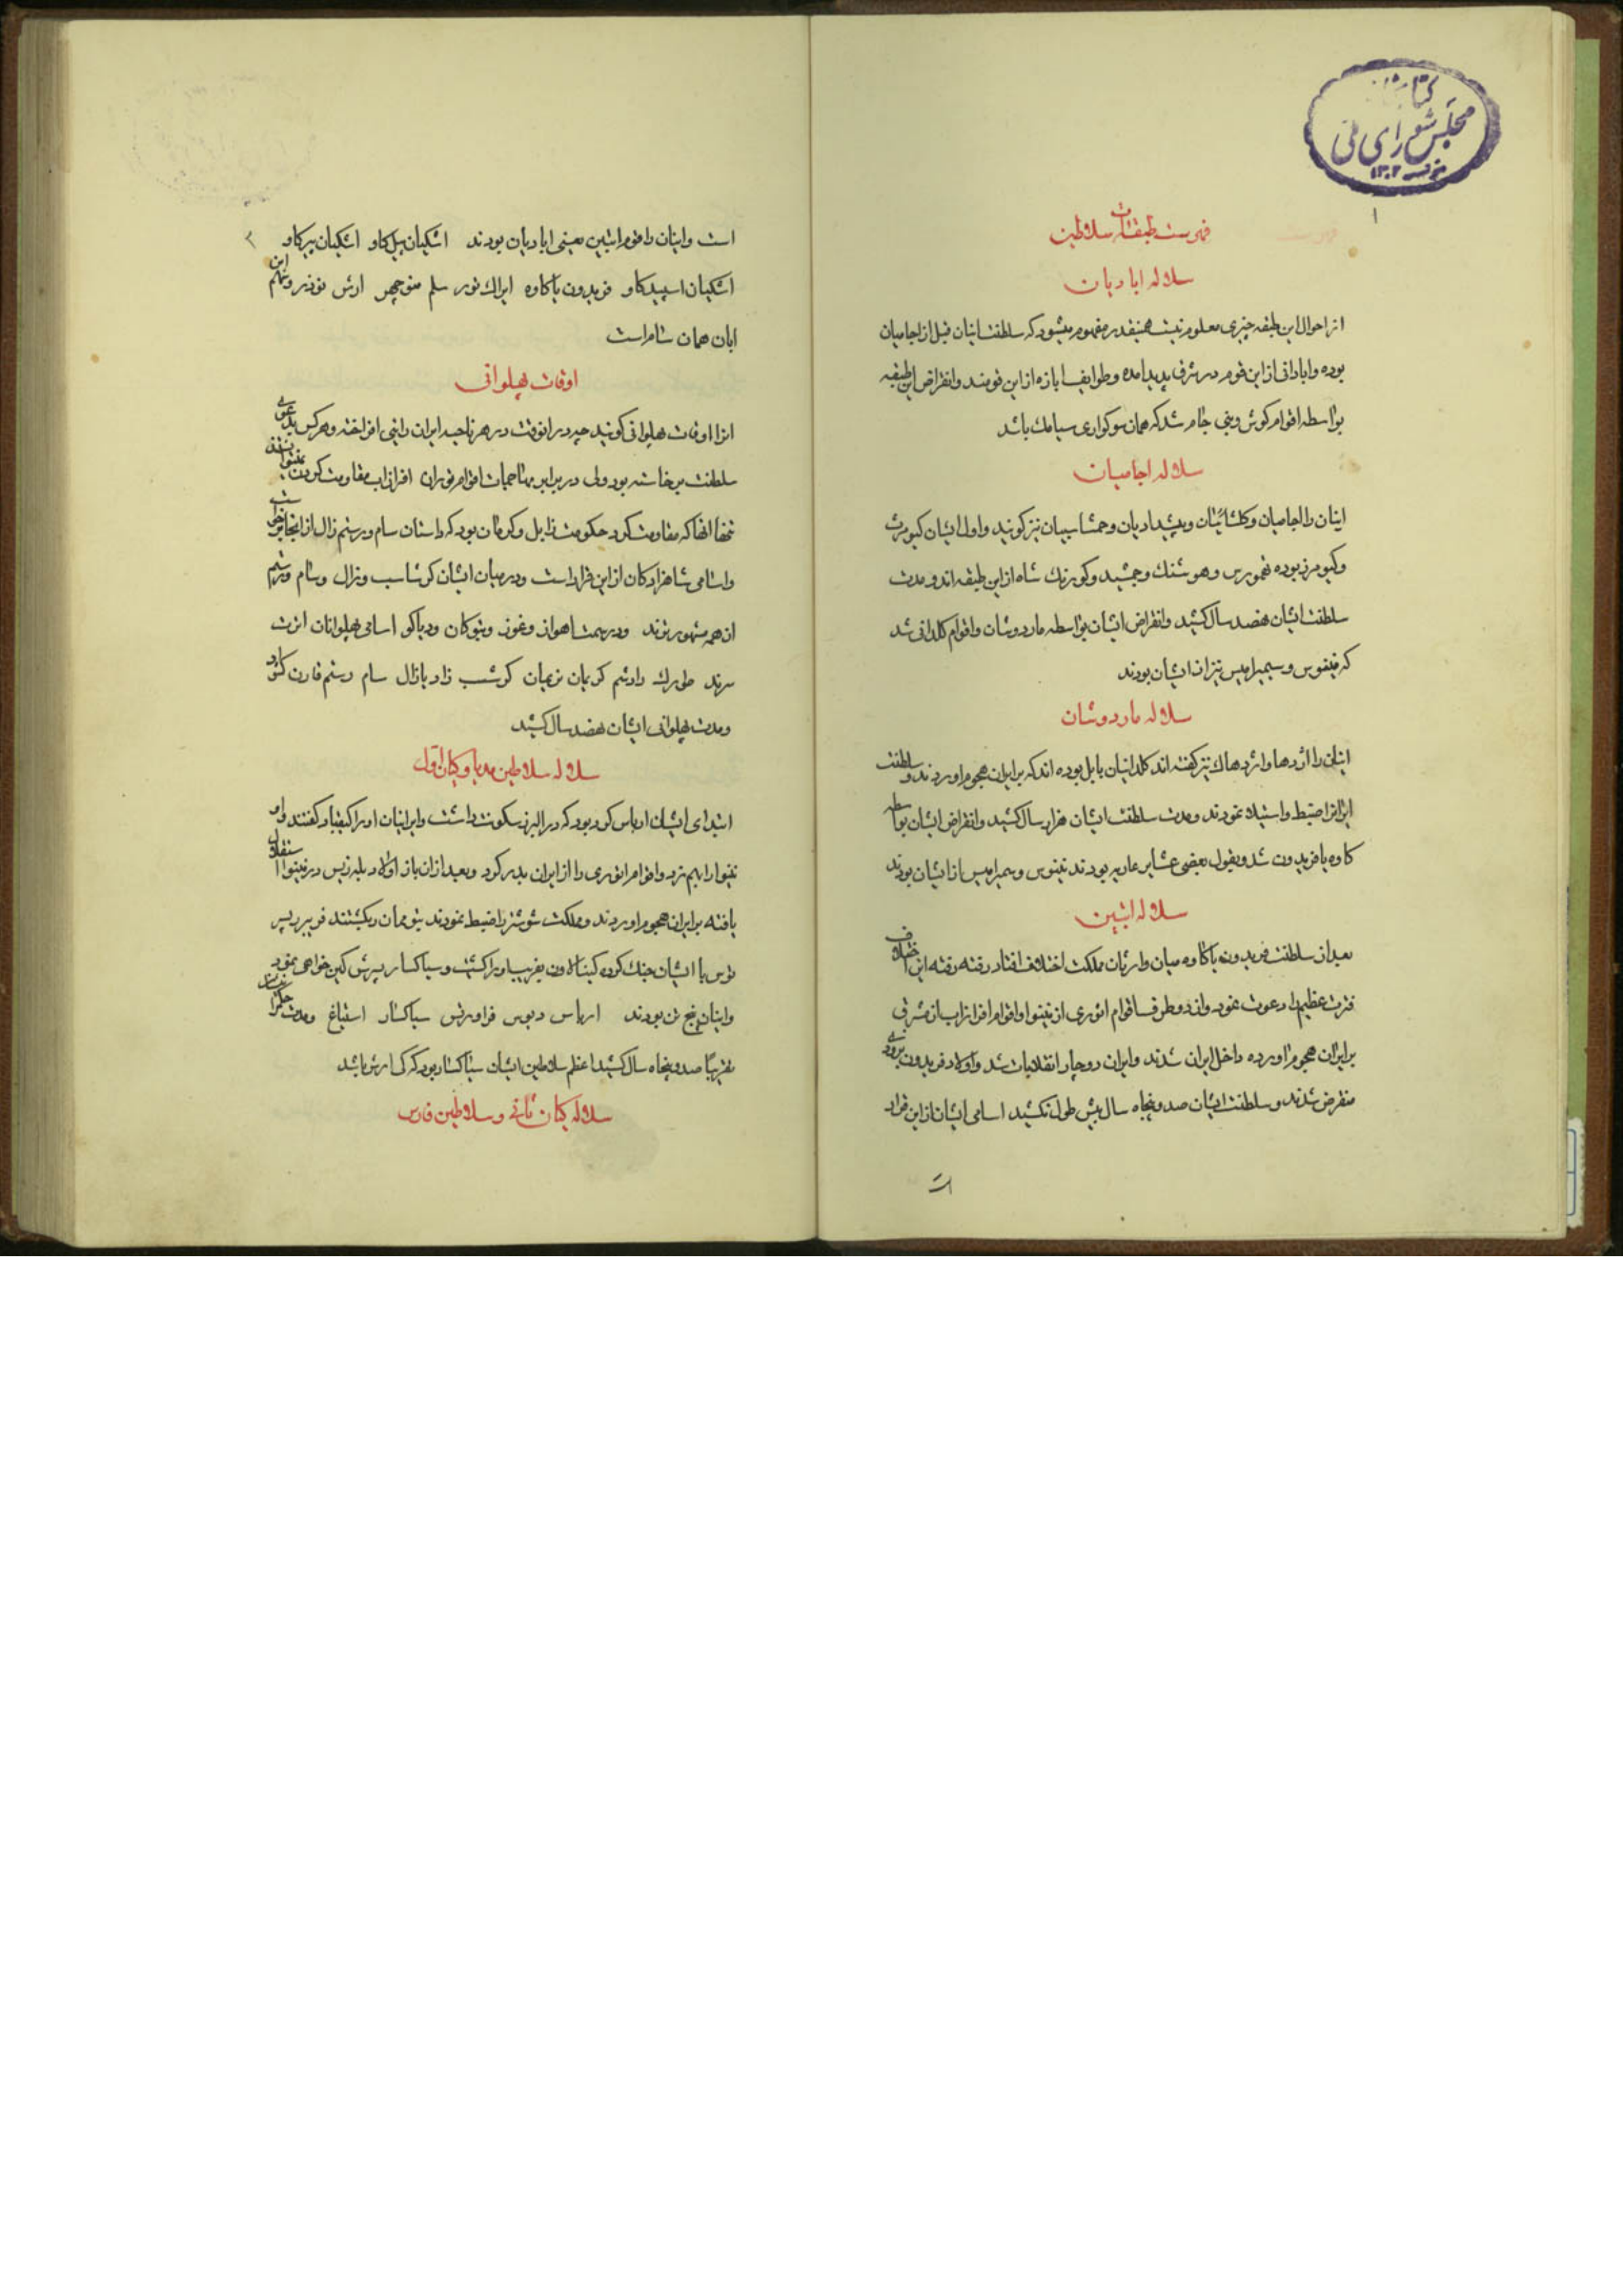 کتابخانه
مجلس شورای ملی
۱۳۰۲
۱
فهرست طبقات سلاطین
سلاله ابادیان
از احوال این طبقه چیزی معلوم نیست همینقدر مفهوم میشود که سلطنت اینان قبل از اجامیان
بوده و ابادانی از این قوم در شرق پدید امده و طوایف ابازه از این قومند و انقراض این طبقه
بواسطه اقوام کوش و بنی جام شد که همان سوکواری سیامک باشد
سلاله اجامیان
اینان را اجامیان و کلشائیان و پیشدادیان و جمشاسپیان نیز کویند و اول ایشان کیومرث
و کیومرز بوده تهمورس و هوشنک و جمشید و کورنک شاه از این طبقه اند و مدت
سلطنت ایشان هفصد سال کشید و انقراض ایشان بواسطه ماردوشان و اقوام کلدانی شد
که نینوس و سیمیرامیس نیز از ایشان بودند
سلاله ماردوشان
اینان را اژدها و اژدهاک نیز کفته اند کلدانیان بابل بوده اند که بر ایران هجوم اوردند و سلطنت
ایرانرا ضبط و استیلا نمودند و مدت سلطنت ایشان هزار سال کشید و انقراض ایشان بواسطه
کاوه یا فریدون شد و بقول بعضی عشایر عاریه بودند نینوس و سمیرامیس از ایشان بودند
سلاله ابتین
بعد از سلطنت فریدون یا کاوه میان وارثان مملکت اختلاف افتاد رفته رفته این اختلاف
فترت عظیم را دعوت نمود و از دو طرف اقوام اثوری از نینوا و اقوام افزانزاب از مشرق
بر ایران هجوم اورده داخل ایران شدند و ایران دوچار انقلابات شد و اولاد فریدون بزودی
منقرض شدند و سلطنت ایشان صد و پنجاه سال بیش طول نکشید اسامی ایشان از این قرار
است
۲
است و اینان را قوم ابتین یعنی ابادیان بودند اشکیان پیل کاو اشکیان بیر کاو
اشکیان اسپید کاو فریدون یا کاوه ایراک تور سلم منوچهر ارش نوذر و نیرم این
ابان همان سام است
اوقات پهلوانی
انرا اوقات پهلوانی کویند چه در انوقت در هر ناحیه ایران رایتی افراخته و هر کس بدعوی
سلطنت برخاسته بود ولی در برابر مهاجمات اقوام توران افرانزاب مقاومت کردن نمیتوانستند
تنها انها که مقاومت کرد حکومت زابل و کرمان بود که داستان سام و رستم زال از انجا برخاست
و اسامی شاهزادکان از این قرار است و در میان ایشان کرشاسب و زال و سام و رستم
از همه مشهورترند و در سمت اهواز و خوز و نیوکان و دیاکو اسامی پهلوانان انزت
سرند طورک دادشم کریمان نریمان کرشسب زاد یا زال سام رستم قارن کشواد
و مدت پهلوانی ایشان هفصد سال کشید
سلاله سلاطین مدیا و کیان اول
ابتدای ایشان ارباس کرد بود که در البرز سکونت داشت و ایرانیان او را کیقباد کفتند و او
نینوا را بهم زد و اقوام اثوری را از ایران بدر کرد و بعد از ان باز اولاد بلیه زیس در نینوا استقلال
یافته بر ایران هجوم اوردند و مملکت شوشتر را ضبط نمودند بکشتند فریبرز پسر
توس با ایشان جنک کرده کینالادون بفریب او را کشت و سیاکسار پسرش کین خواهی نمود
و اینان پنج تن بودند ارباس دیوس فراورتس سیاکسار استیاغ و مدت
تقریبًا صد و پنجاه سال کشید اعظم سلاطین ایشان سیاکسار بود که کی ارش باشد
سلاله کیان ثانی و سلاطین فارس